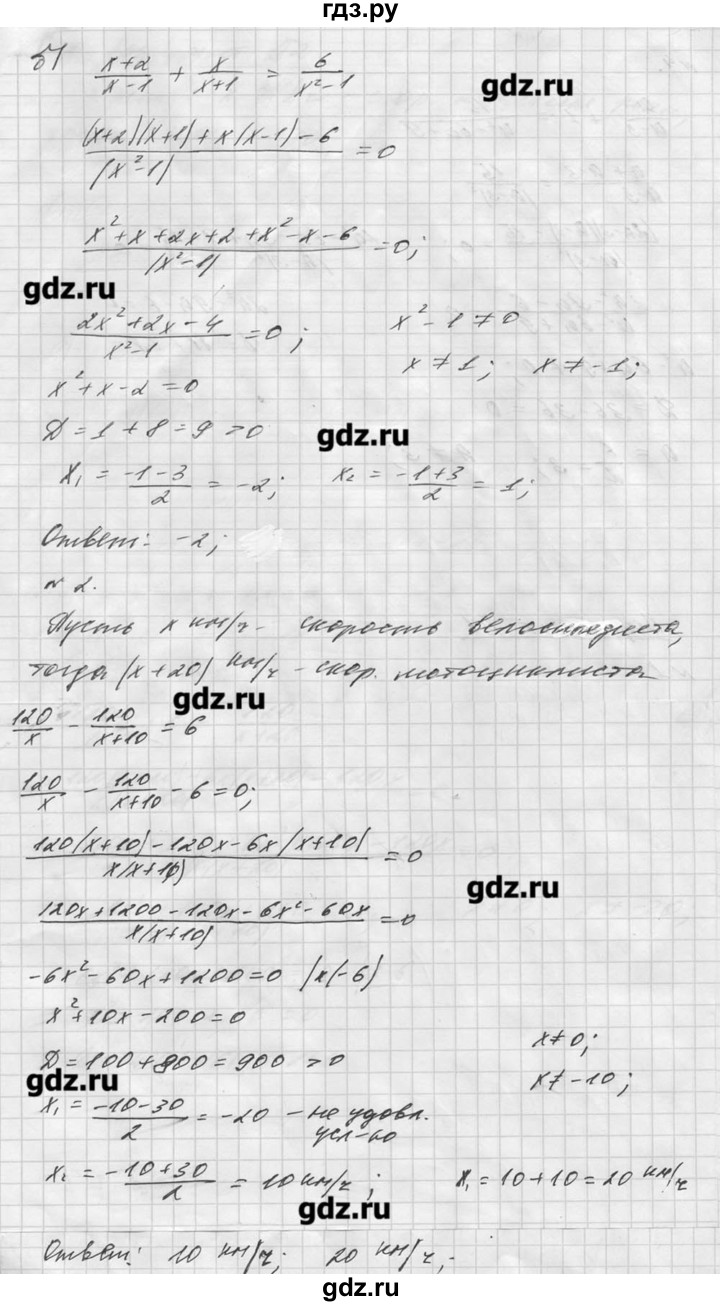 гдз.ру
б1 (x+2)/(x-1) + x/(x+1) = 6/(x²-1)
gdz.ru
((x+2)(x+1)+x(x-1)-6)/(x²-1) = 0
(x²+x+2x+2+x²-x-6)/(x²-1) = 0;
gdz.ru
(2x²+2x-4)/(x²-1) = 0; x²-1≠0
x≠1; x≠-1;
x²+x-2=0
Д=1+8=9>0
gdz.ru
x₁ = (-1-3)/2 = -2; x₂ = (-1+3)/2 = 1;
Ответ: -2;
№ 2.
Пусть x км/ч - скорость велосипедиста,
тогда (x+20) км/ч - скор. мотоциклиста
gdz.ru
120/x - 120/(x+10) = 6
120/x - 120/(x+10) - 6 = 0;
(120(x+10)-120x-6x(x+10))/(x(x+10)) = 0
gdz.ru
(120x+1200-120x-6x²-60x)/(x(x+10)) = 0
-6x²-60x+1200=0 |x(-6)
x²+10x-200=0
x≠0;
Д=100+800=900>0
x≠-10;
gdz.ru
x₁ = (-10-30)/2 = -20 - не удовл.
усл-ю
x₂ = (-10+30)/2 = 10 км/ч; x₁=10+10=20 км/ч
gdz.ru
Ответ: 10 км/ч; 20 км/ч,-
gdz.ru